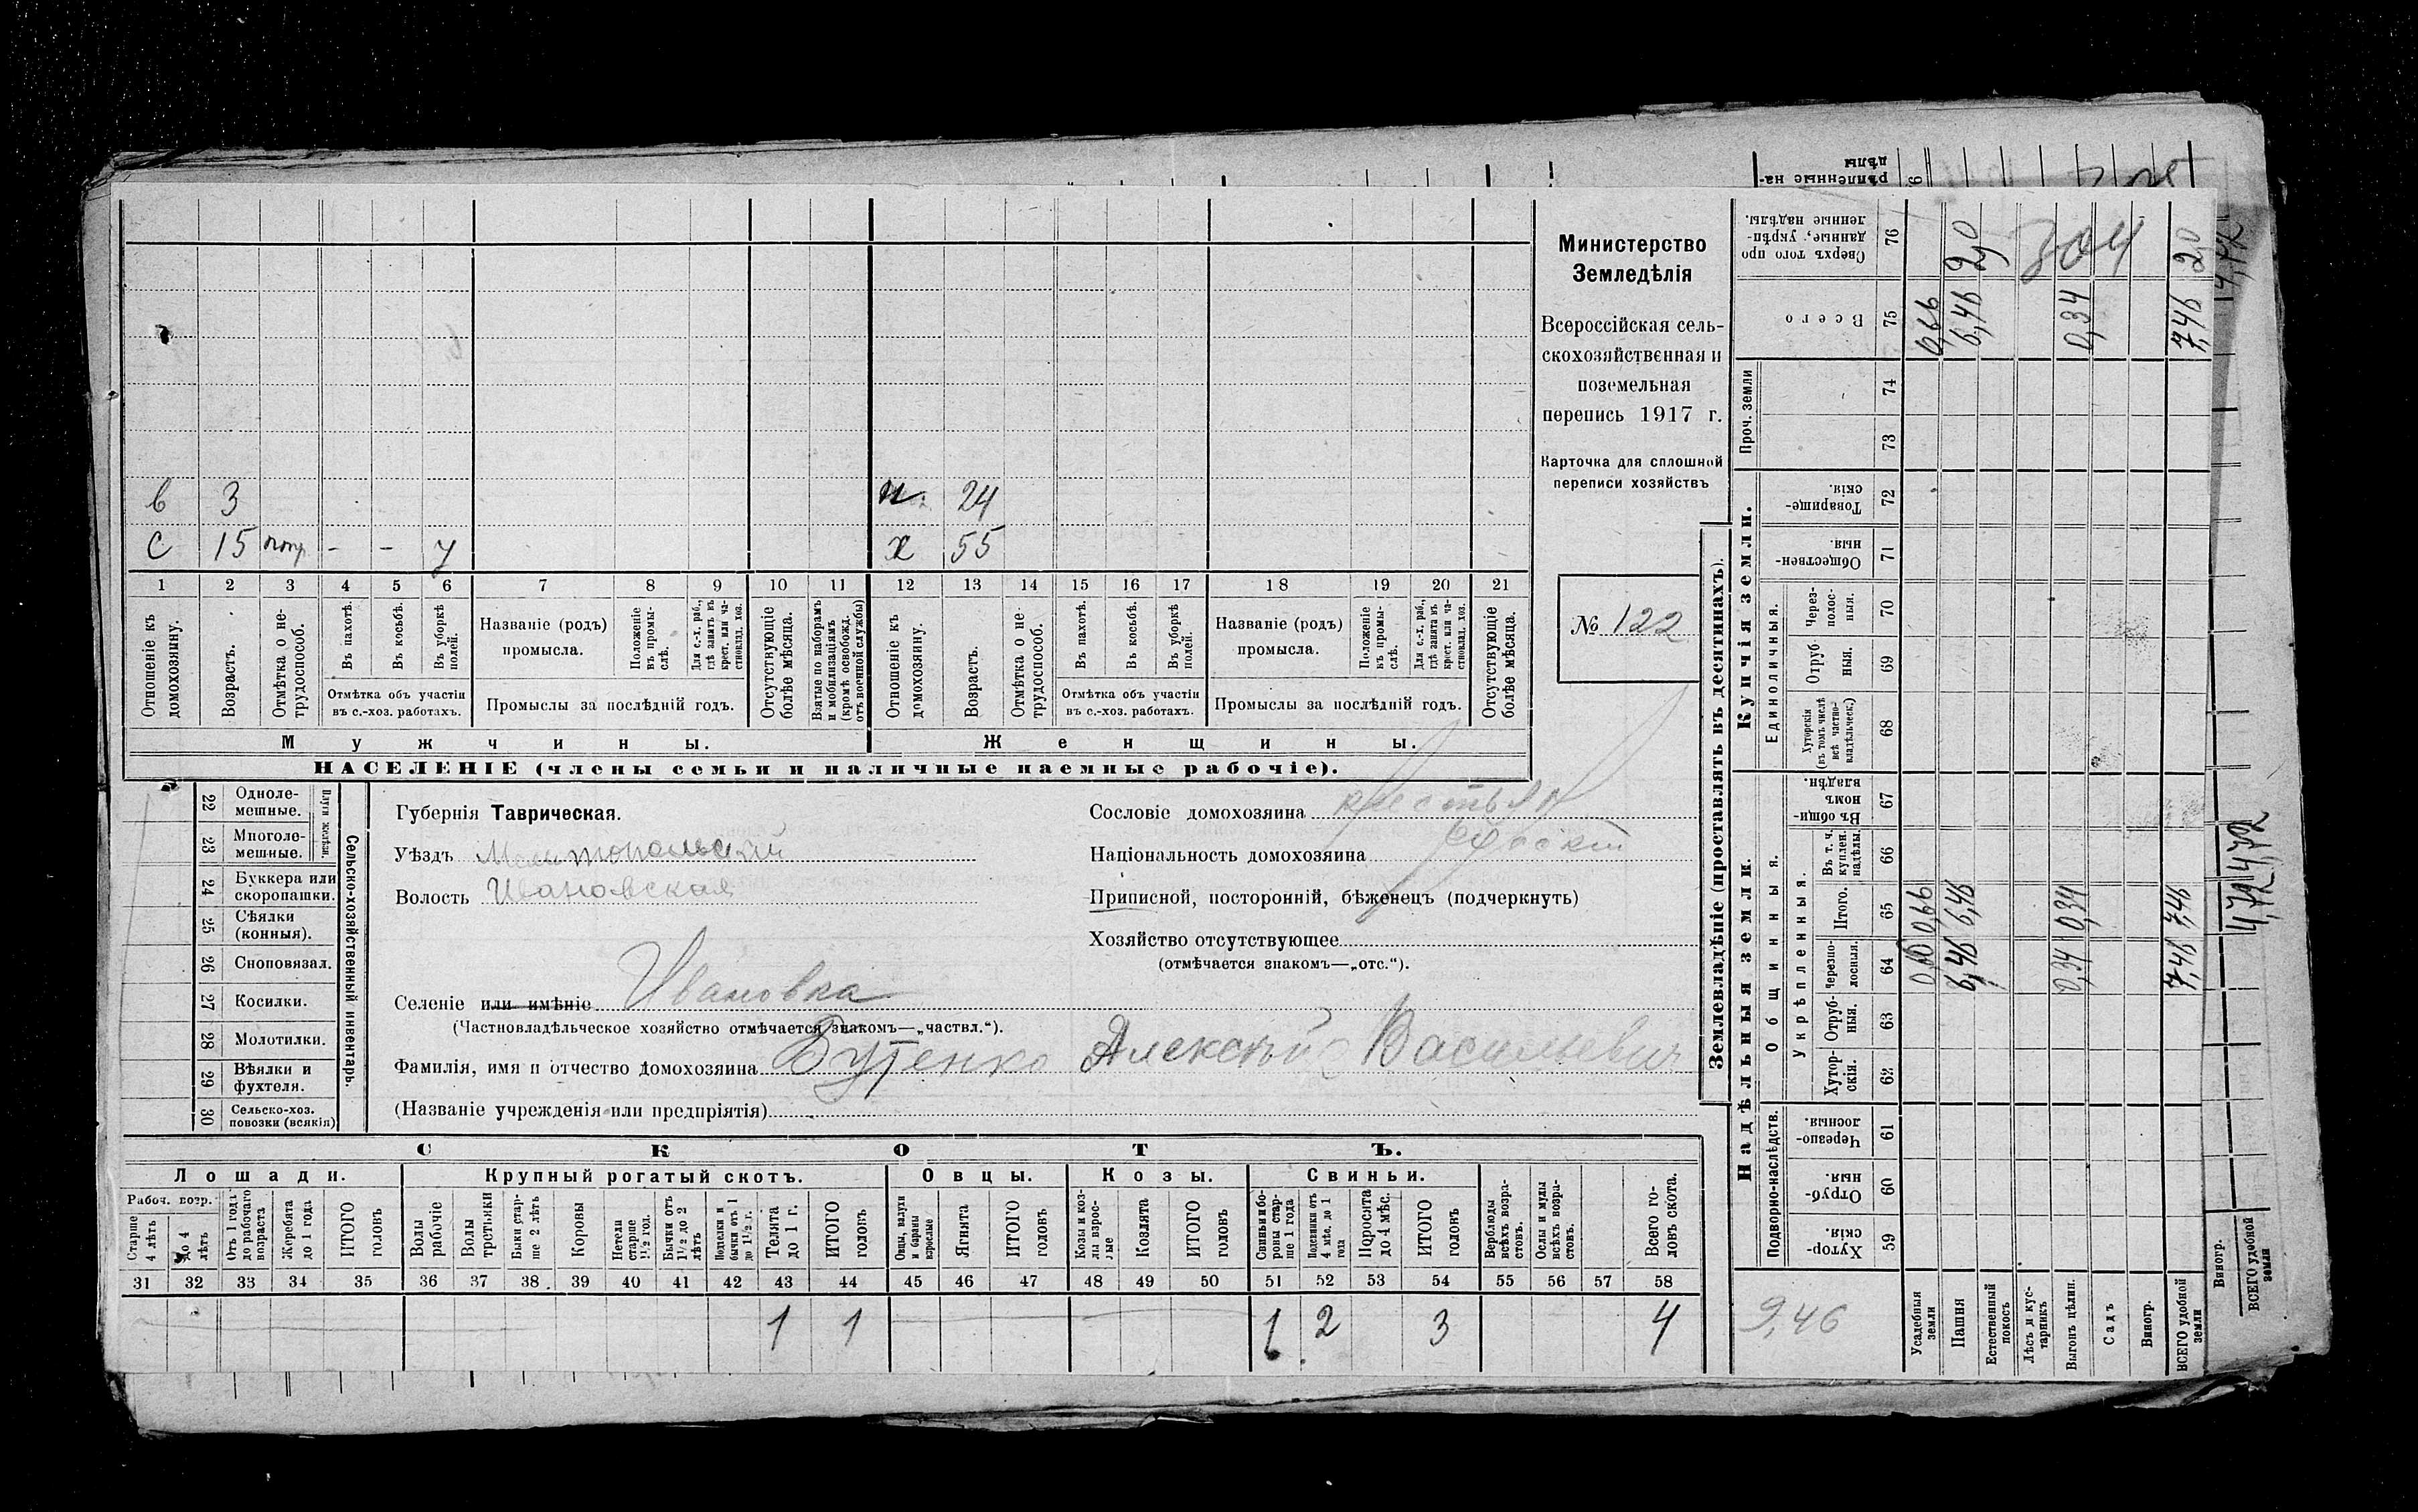 в 3 н. 24
С 15 – – у х 55
1 2 3 4 5 6 7 8 9 10 11 12 13 14 15 16 17 18 19 20 21
Отношеніе къ домохозяину.
Возрастъ.
Отмѣтка о не-
трудоспособ.
Въ пахотѣ.
Въ косьбѣ.
Въ уборкѣ
полей.
Отмѣтка объ участіи
въ с.-хоз. работахъ.
Названіе (родъ)
промысла.
Положеніе
въ промы-
слѣ.
Для с.-х. раб.,
гдѣ занятъ въ
крест. или ча-
стновлад. хоз.
Промыслы за послѣдній годъ.
Отсутствующіе
болѣе мѣсяца.
Взятые по наборамъ
и мобилизаціямъ
(кромѣ освобожд.
отъ военной службы)
Отношеніе къ
домохозяину.
Возрастъ.
Отмѣтка о не-
трудоспособ.
Въ пахотѣ.
Въ косьбѣ.
Въ уборкѣ
полей.
Отмѣтка объ участіи
въ с.-хоз. работахъ.
Названіе (родъ)
промысла.
Положеніе
въ промы-
слѣ.
Для с.-х. раб.,
гдѣ занята въ
крест. или ча-
стновлад. хоз.
Промыслы за послѣдній годъ.
Отсутствующіе
болѣе мѣсяца.
Мужчины.
Женщины.
НАСЕЛЕНІЕ (члены семьи и наличные наемные рабочіе).
Министерство
Земледѣлія
Всероссійская сель-
скохозяйственная и
поземельная
перепись 1917 г.
Карточка для сплошной
переписи хозяйствъ
№ 122
22 Одноле-
мешные.
23 Многоле-
мешные.
Плуги желѣзн.
24 Буккера или
скоропашки.
25 Сѣялки
(конныя).
26 Сноповязал.
27 Косилки.
28 Молотилки.
29 Вѣялки и
фухтеля.
30 Сельско-хоз.
повозки (всякія)
Сельско-хозяйственный инвентарь.
Губернія Таврическая.
Уѣздъ Мелитопольский
Волость Ивановская
Селеніе или имѣніе Ивановка
(Частновладѣльческое хозяйство отмѣчается знакомъ—„частвл.“).
Фамилія, имя и отчество домохозяина Бутенко Алексѣй Васильевич
(Названіе учрежденія или предпріятія)
Сословіе домохозяина крестьян
Національность домохозяина
Приписной, посторонній, бѣженецъ (подчеркнуть)
Хозяйство отсутствующее
(отмѣчается знакомъ—„отс.“).
СКОТЪ.
Лошади.
Крупный рогатый скотъ.
Овцы.
Козы.
Свиньи.
Рабоч. возр.
Старше
4 лѣтъ
до 4
лѣтъ
Отъ 1 года
до рабочаго
возраста
Жеребята
до 1 года
ИТОГО
головъ
Волы
рабочіе
Волы
третьяки
Быки стар-
ше 2 лѣтъ
Коровы
Нетели
старше
1½ год.
Бычки отъ
1½ до 2
лѣтъ
Подтелки и
бычки отъ 1
до 1½ г.
Телята
до 1 г.
ИТОГО
головъ
Овцы, валухи
и бараны
взрослые
Ягнята
ИТОГО
головъ
Козы и коз-
лы взрос-
лые
Козлята
ИТОГО
головъ
Свиньи и бо-
ровы стар-
ше 1 года
Подсвинки отъ
4 мѣс. до 1
года
Поросята
до 4 мѣс.
ИТОГО
головъ
Верблюды
всѣхъ возра-
стовъ.
Ослы и мулы
всѣхъ возра-
стовъ.
Всего го-
ловъ скота.
31 32 33 34 35 36 37 38 39 40 41 42 43 44 45 46 47 48 49 50 51 52 53 54 55 56 57 58
1 1 1 2 3 4
Землевладѣніе (проставлять въ десятинахъ).
Надѣльныя земли.
Купчія земли.
Проч. земли
Подворно-наслѣдств.
Общинныя.
Укрѣпленныя.
Единоличныя.
Хутор-
скія. 59
Отруб-
ныя. 60
Черезпо-
лосныя. 61
Хутор-
скія. 62
Отруб-
ныя. 63
Черезпо-
лосныя. 64
Итого. 65
Въ т. ч.
куплен.
надѣлы. 66
Въ общи-
номъ
владѣн. 67
Хуторскія
(въ томъ числѣ
всѣ частно-
владѣльческ.) 68
Отруб-
ныя. 69
Через-
полос-
ныя. 70
Обществен-
ныя. 71
Товарище-
скія. 72
73
74
Всего 75
Сверхъ того про
данные, укрѣп-
ленные надѣлы. 76
Усадебныя
земли 0,66 0,66
Пашня 6,46 6,46 6,46 2,0
Естественный
покосъ
Лѣсъ и кус-
тарникъ
Выгонъ цѣлин. 0,34 0,34 0,34
Садъ
Виногр.
ВСЕГО удобной
земли 7,46 7,46 7,46 2,0
304
9,46
рѣпленные на-
дѣлы
Виногр.
ВСЕГО удобной
земли
4,72 4,72